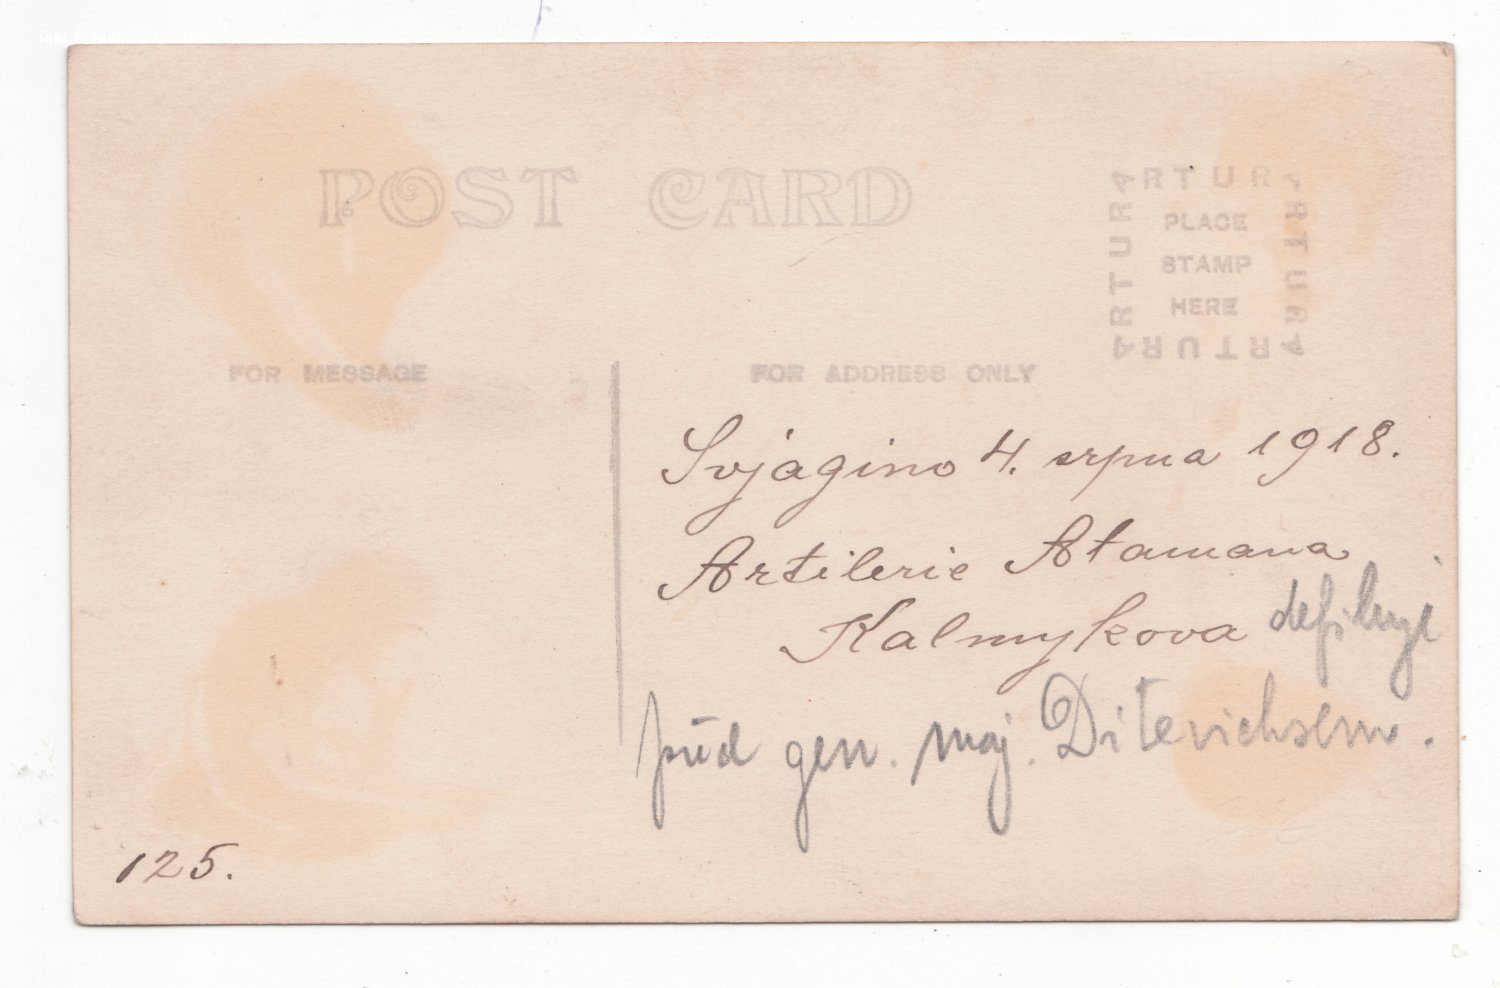 POST CARD
ARTURA
ARTURA
ARTURA
ARTURA
PLACE
STAMP
HERE
FOR MESSAGE
FOR ADDRESS ONLY
Svjagino 4. srpna 1918.
Artilerie Atamana
Kalmykova defiluje
před gen. maj. Ditevichsem.
125.